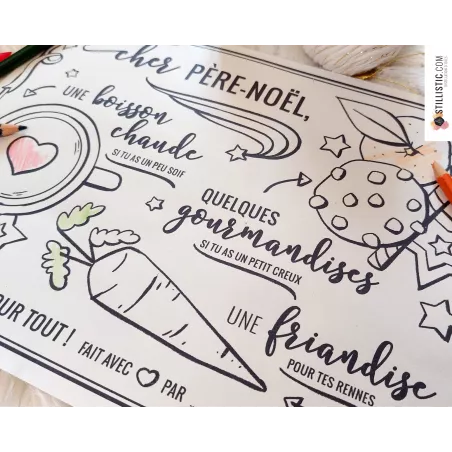 cher PÈRE-NOËL,
UNE boisson
chaude
SI TU AS UN PEU SOIF
QUELQUES
gourmandises
SI TU AS UN PETIT CREUX
UNE friandise
POUR TES RENNES
POUR TOUT !
FAIT AVEC PAR
STILLISTIC.COM